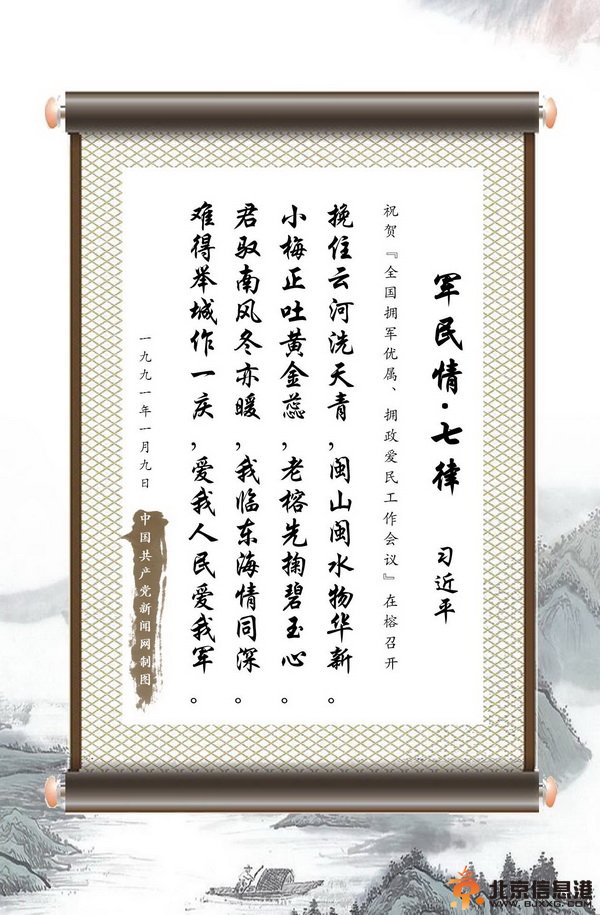 军民情·七律
习近平
祝贺『全国拥军优属、拥政爱民工作会议』在榕召开
挽住云河洗天青,闽山闽水物华新。
小梅正吐黄金蕊,老榕先掬碧玉心。
君驭南风冬亦暖,我临东海情同深。
难得举城作一庆,爱我人民爱我军。
一九九一年一月九日
中国共产党新闻网制图
北京信息港
WWW.BJXXG.COM